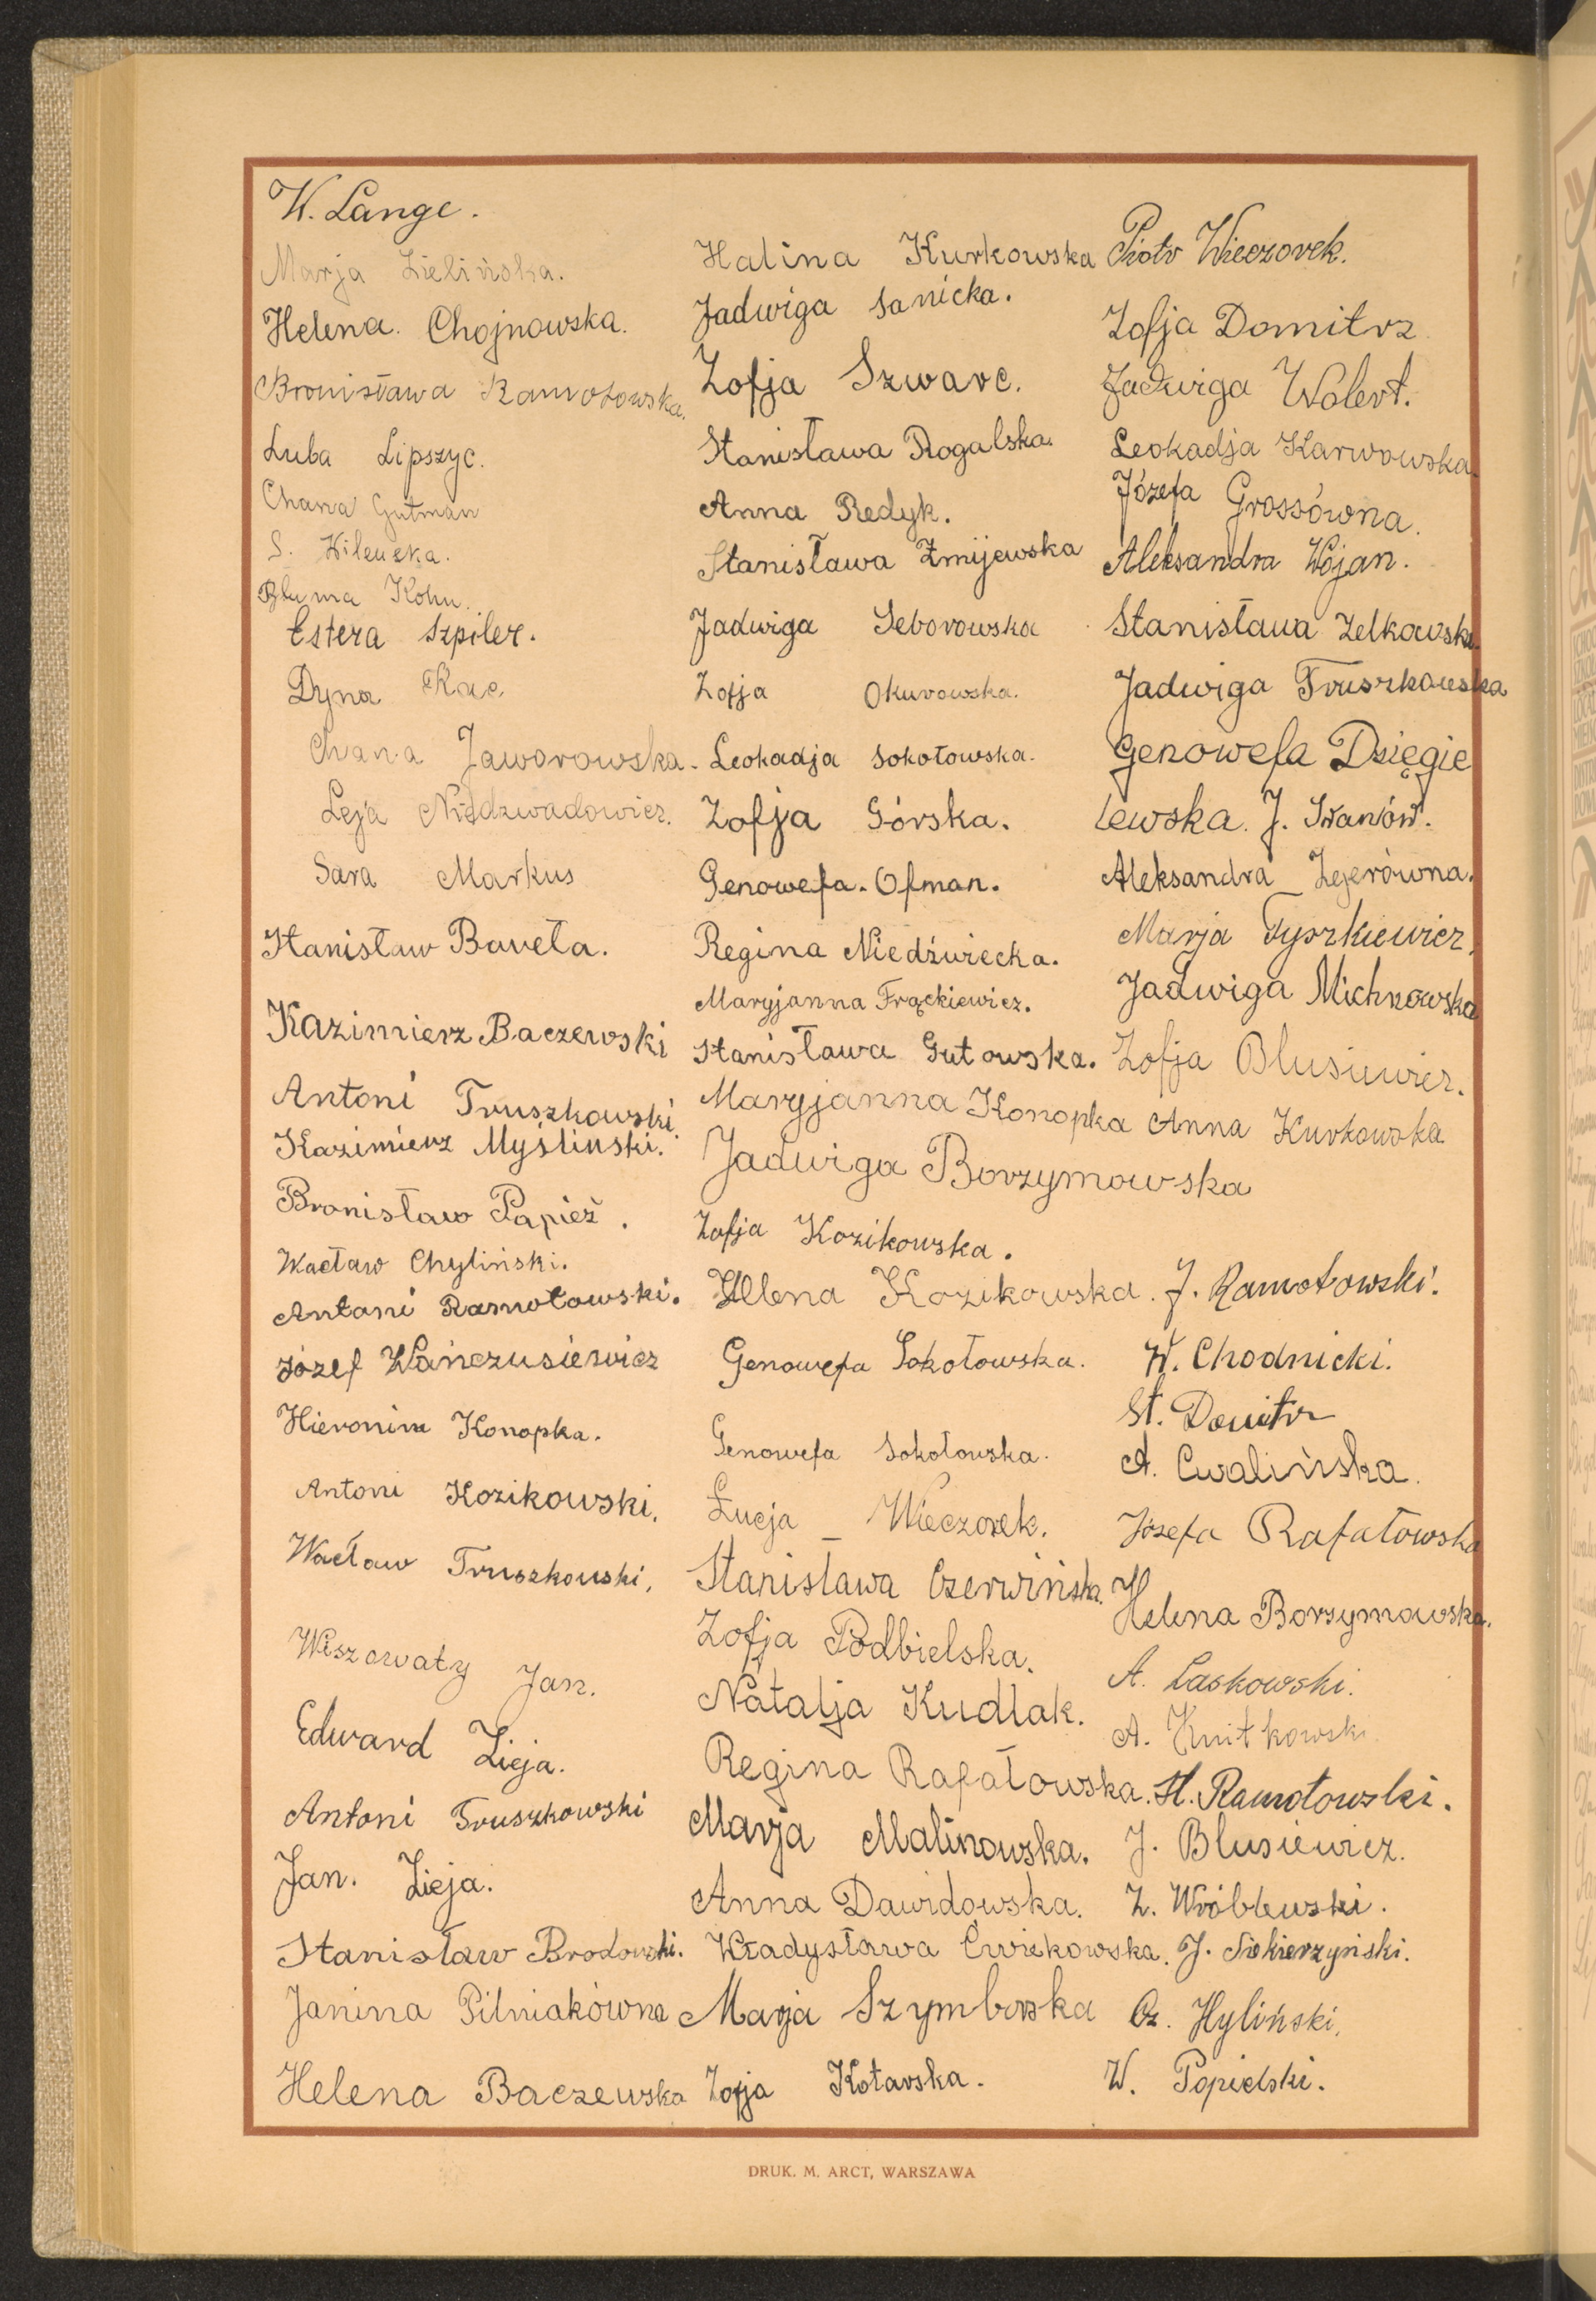 W. Lange.
Marja Zielińska.
Helena. Chojnowska.
Bronisława Ramotowska.
Luba Lipszyc.
Chana Gutman
S. Wilewska.
Bluma Kohn.
Estera Szpiler.
Dyna Kac.
Chana Jaworowska.
Leja Niedzwadowicz.
Sara Markus
Stanisław Baveła.
Kazimierz Baczewski
Antoni Truszkowski.
Kazimierz Myśliński.
Bronisław Papież.
Wacław Chyliński.
Antoni Ramotowski.
Józef Wańczusiewicz
Hieronim Konopka.
Antoni Kozikowski.
Wacław Truszkowski,
Wiszowaty Jan.
Edward Zieja.
Antoni Truszkowski
Jan. Zieja.
Stanisław Brodowski.
Janina Pilniakówna
Helena Baczewska
Halina Kurkowska
Jadwiga Sanicka.
Zofja Szwarc.
Stanisława Rogalska.
Anna Redyk.
Stanisława Żmijewska
Jadwiga Seborowska
Zofja Okurowska.
Leokadja Sokołowska.
Zofja Górska.
Genowefa. Ofman.
Regina Niedźwiecka.
Maryjanna Frąckiewicz.
Stanisława Gutowska.
Maryjanna Konopka
Jadwiga Borzymowska
Zofja Kozikowska.
Helena Kozikowska.
Genowefa Sokołowska.
Genowefa Sokołowska.
Łucja _ Wieczorek.
Stanisława Czerwińska.
Zofja Podbielska.
Natalja Kudlak.
Regina Rafałowska.
Marja Malinowska.
Anna Dawidowska.
Władysława Ćwiekowska.
Marja Szymborska
Zofja Kotarska.
Piotr Wieczorek.
Zofja Domitrz
Jadwiga Wolert.
Leokadja Karwowska.
Józefa Grossówna.
Aleksandra Wojan.
Stanisława Zelkowska.
Jadwiga Truszkowska
Genowefa Dzięgie
lewska. J. Iwanów.
Aleksandra Zejerówna.
Marja Tyszkiewicz.
Jadwiga Michnowska
Zofja Blusiewicz.
Anna Kurkowska
J. Ramotowski.
W. Chodnicki.
St. Domitrz
A. Cwalińska.
Józefa Rafałowska
Helena Borzymowska.
A. Laskowski.
A. Knitkowski
H. Ramotowski.
J. Blusiewicz.
Z. Wróblewski.
J. Siekierzyński.
Cz. Hyliński.
W. Popielski.
DRUK. M. ARCT, WARSZAWA